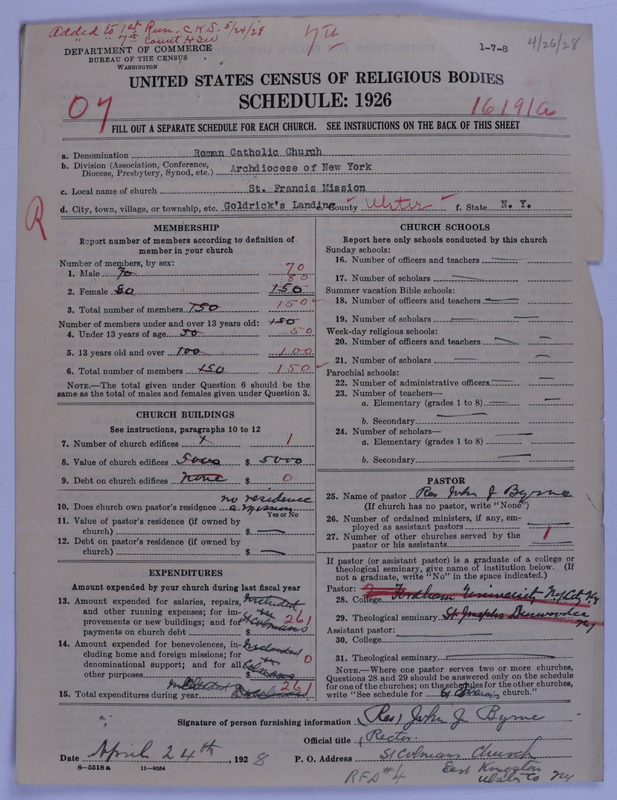 Added to 1st Run. C.K.S. 5/24/28
7th Count
7th
1-7-8
4/26/28
DEPARTMENT OF COMMERCE
BUREAU OF THE CENSUS
WASHINGTON
UNITED STATES CENSUS OF RELIGIOUS BODIES
SCHEDULE: 1926
07
1619/a
FILL OUT A SEPARATE SCHEDULE FOR EACH CHURCH. SEE INSTRUCTIONS ON THE BACK OF THIS SHEET
a. Denomination Roman Catholic Church
b. Division (Association, Conference, Diocese, Presbytery, Synod, etc.) Archdiocese of New York
c. Local name of church St. Francis Mission
d. City, town, village, or township, etc. Goldrick's Landing County Ulster f. State N. Y.
R
MEMBERSHIP
Report number of members according to definition of
member in your church
Number of members, by sex:
1. Male 70 70
2. Female 80 80 150
3. Total number of members 150 150
Number of members under and over 13 years old: 150
4. Under 13 years of age 50 50
5. 13 years old and over 100 100
6. Total number of members 150 150
NOTE.—The total given under Question 6 should be the
same as the total of males and females given under Question 3.
CHURCH BUILDINGS
See instructions, paragraphs 10 to 12
7. Number of church edifices 1 1
8. Value of church edifices 5000 $ 5000
9. Debt on church edifices none $ 0
no residence
10. Does church own pastor's residence a mission
Yes or No
11. Value of pastor's residence (if owned by
church) $ —
12. Debt on pastor's residence (if owned by
church) $ —
EXPENDITURES
Amount expended by your church during last fiscal year
13. Amount expended for salaries, repairs,
and other running expenses; for im-
provements or new buildings; and for
payments on church debt $ 261
14. Amount expended for benevolences, in-
cluding home and foreign missions; for
denominational support; and for all
other purposes $ 0
15. Total expenditures during year $ 261
CHURCH SCHOOLS
Report here only schools conducted by this church
Sunday schools:
16. Number of officers and teachers — —
17. Number of scholars — —
Summer vacation Bible schools:
18. Number of officers and teachers — —
19. Number of scholars — —
Week-day religious schools:
20. Number of officers and teachers — —
21. Number of scholars — —
Parochial schools:
22. Number of administrative officers — —
23. Number of teachers—
a. Elementary (grades 1 to 8) — —
b. Secondary —
24. Number of scholars—
a. Elementary (grades 1 to 8) —
b. Secondary —
PASTOR
25. Name of pastor Rev John J Byrne
(If church has no pastor, write "None")
26. Number of ordained ministers, if any, em-
ployed as assistant pastors —
27. Number of other churches served by the
pastor or his assistants 1
If pastor (or assistant pastor) is a graduate of a college or
theological seminary, give name of institution below. (If
not a graduate, write "No" in the space indicated.)
Pastor:
28. College Fordham University N.Y. City N.Y.
29. Theological seminary St Josephs Dunwoodie
NY
Assistant pastor:
30. College
31. Theological seminary —
NOTE.—Where one pastor serves two or more churches,
Questions 28 and 29 should be answered only on the schedule
for one of the churches; on the schedules for the other churches,
write "See schedule for St Colmans church."
Signature of person furnishing information (Rev) John J Byrne
Official title (Rector
Date April 24th, 1928 P. O. Address St Colmans Church
8—5518 a 11—9054
RFD #4 East Kingston
Ulster Co NY